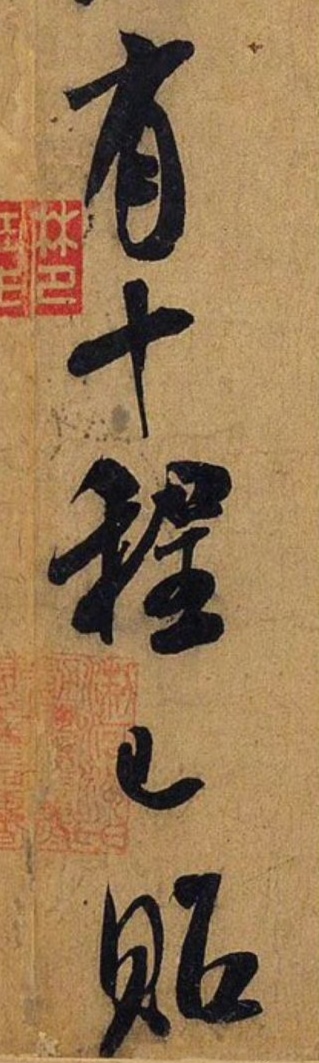 有十程已貽